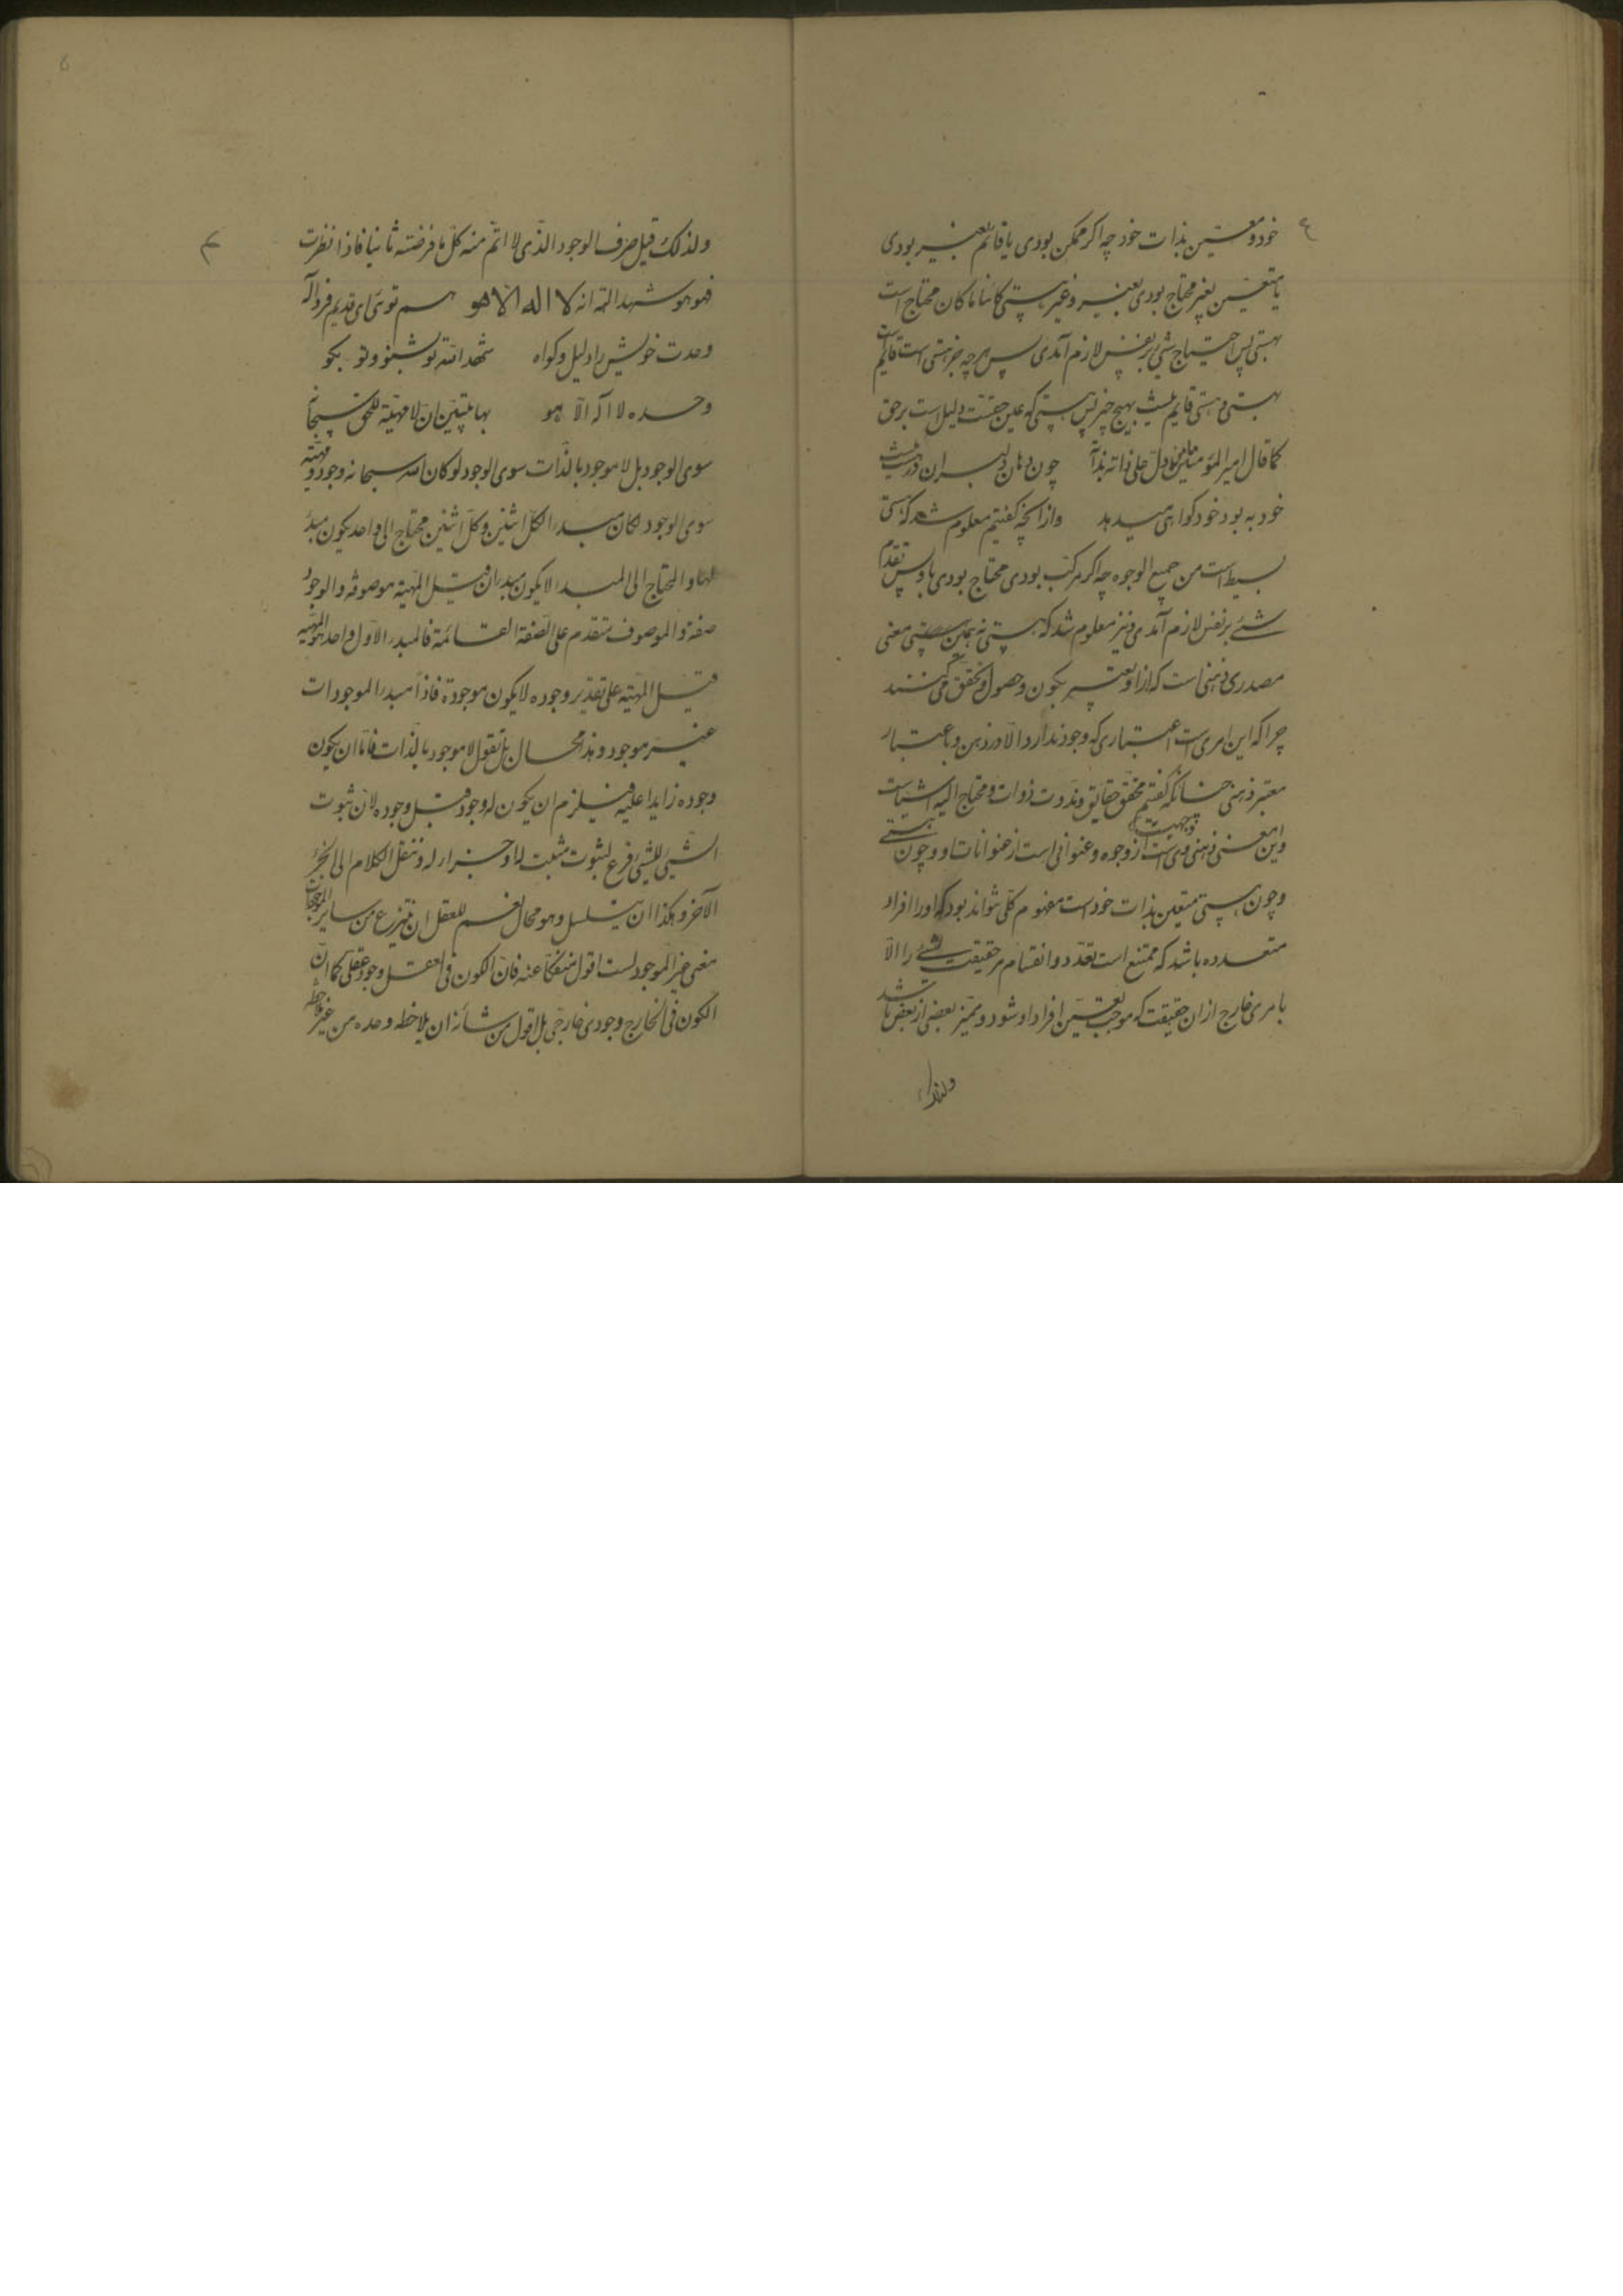 ٤
خود و متعین بذات خود چه اکر ممکن بودی یا قائم بغیر بودی
یا متعین بغیر محتاج بودی بغیر و غیر هستی کائنا ما کان محتاج است
بهستی پس احتیاج شیٔ بر نفس لازم آمدی پس هر چه جز هستی است قایم است
بهستی و هستی قایم نیست بهیچ چیز پس هستی که عین حقست دلیل است بر حق
کما قال امیر المؤمنین یا من دل علی ذاته بذاته چون دهان دلبران در نیست
خود به بود خود کواهی میدهد وازانچه کفتیم معلوم شد که هستی
بسیط است من جمیع الوجوه چه اکر مرکب بودی محتاج بودی باو پس تقدم
شیٔ بر نفس لازم آمدی و نیز معلوم شد که هستی نه همین هستی معنی
مصدری ذهنی است که ازو تعبیر بکون و حصول و تحقق می کنند
چرا که این امری است اعتباری که وجود ندارد الا در ذهن و باعتبار
معتبر ذهنی چنانکه کفتیم محقق حقایق و مذوت ذوات و محتاج الیه اشیاست
واین معنی ذهنی وجهیست از وجوه و عنوانی است از عنوانات او و چون هستی
وچون هستی متعین بذات خود است مفهوم کلی نتواند بود که اورا افراد
متعدده باشد که ممتنع است تعدد و انقسام مر حقیقت شیٔ را الا
بامری خارج ازان حقیقت که موجب تعین افراد او شود و ممیز بعضی از بعض باشد
ولذلک
ولذلک قیل صرف الوجود الذی لا اتم منه کل ما فرضته ثانیا فاذا نظرت
فهو هو شهد الله انه لا اله الا هو هم توئی ای قدیم فرد اله
وحدت خویش را دلیل و کواه شهد الله تو بشنو و تو بکو
وحده لا اله الا هو بها یتبین ان لا مهیّة للحق سبحانه
سوی الوجود بل لا موجود بالذات سوی الوجود لو کان لله سبحانه وجود و مهیة
سوی الوجود لکان مبدء الکل اثنین و کل اثنین محتاج الی واحد یکون مبدء
لهما و المحتاج الی المبدء لا یکون مبدء ان قیل المهیة موصوفة والوجود
صفة والموصوف متقدم علی الصفة القائمة فالمبدء الاول واحد هو المهیة
قیل المهیة علی تقدیر وجوده لا یکون موجودة فاذا مبدء الموجودات
غیر موجود و هذا محال بل نقول لا موجود بالذات فاما ان یکون
وجوده زایدا علیه فیلزم ان یکون له وجود قبل وجوده لان ثبوت
الشیٔ للشیٔ فرع لثبوت مثبت له او جزء له و ننقل الکلام الی الجزء
الآخر و هکذا ان یتسلسل و هو محال نعم للعقل ان ینتزع من سایر الموجودات
معنی غیر الموجود لست اقول منفکا عنه فان الکون فی العقل وجود عقلی کما ان
الکون فی الخارج وجودی خارجی بل اقول من شانه ان یلاحظه وحده من غیر ملاحظة